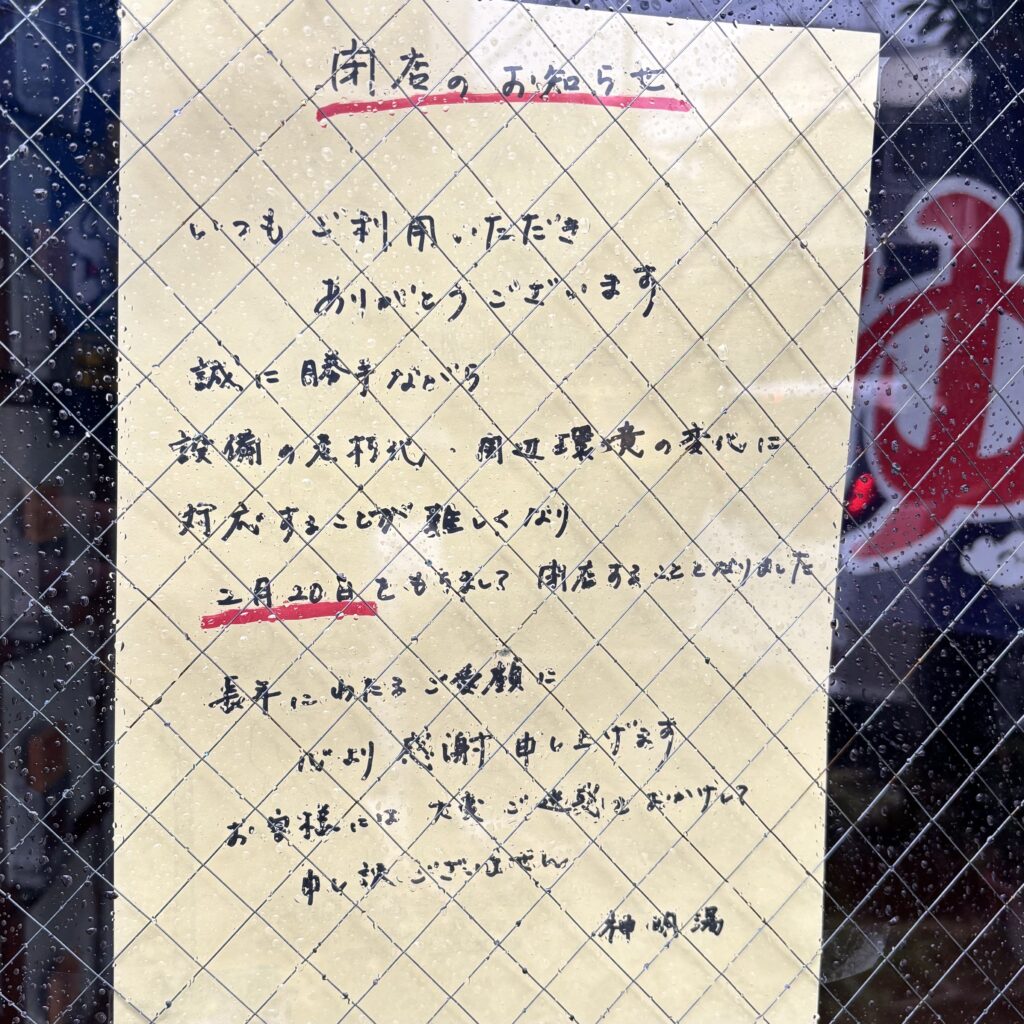 閉店のお知らせ
いつもご利用いただき
ありがとうございます
誠に勝手ながら
設備の老朽化、周辺環境の変化に
対応することが難しくなり
2月20日をもちまして閉店することとなりました
長年にわたるご愛顧に
心より感謝申し上げます
お客様には大変ご迷惑をおかけして
申し訳ございません
神明湯
ゆ